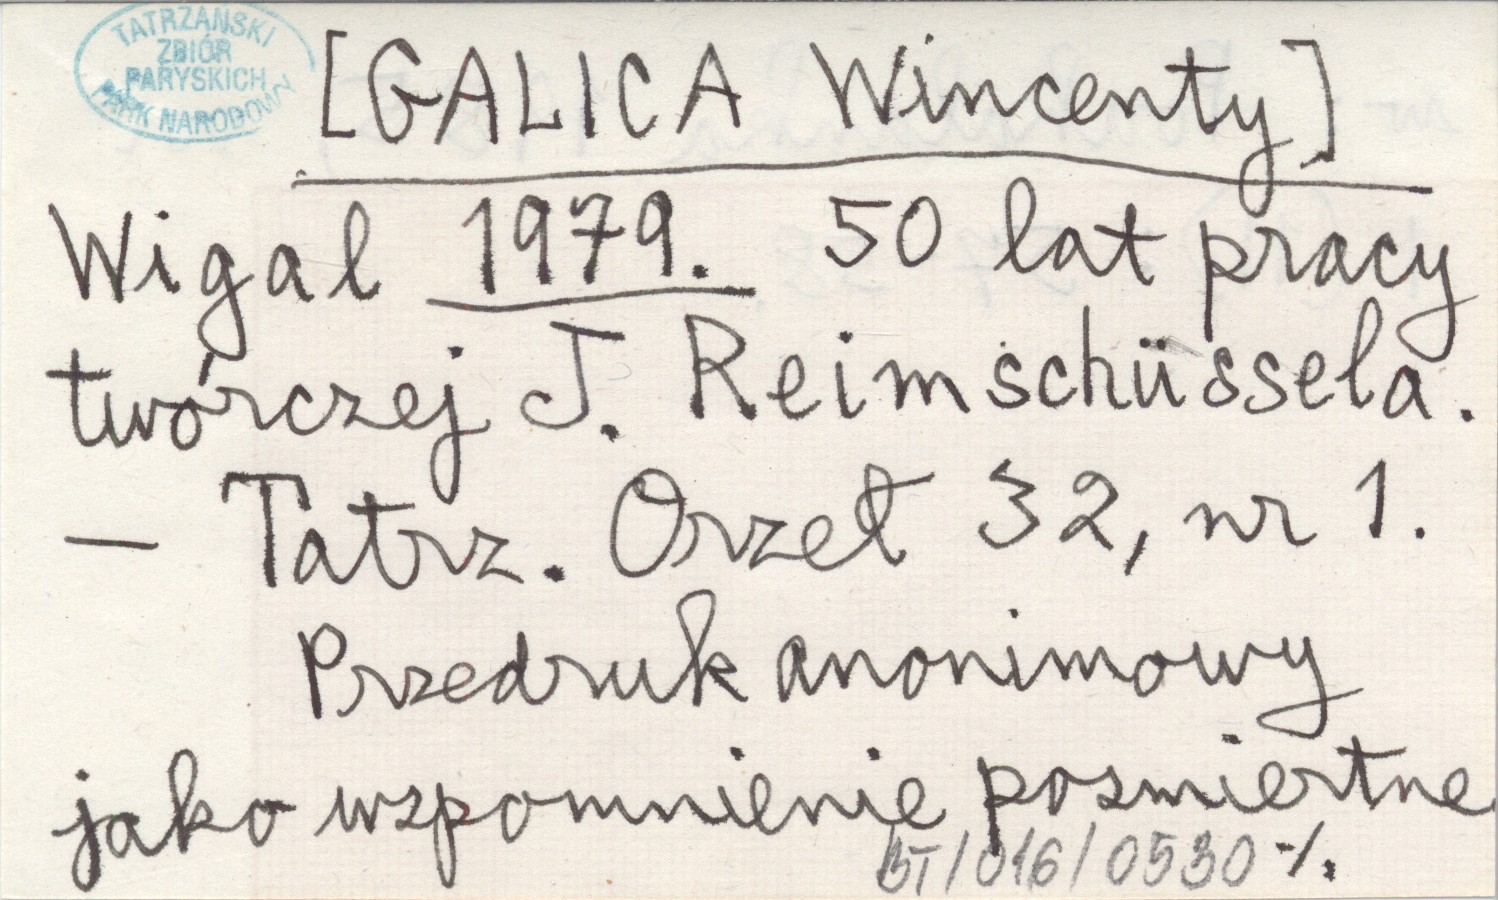 TATRZAŃSKI
ZBIÓR
PARYSKICH
PARK NARODOWY
[GALICA Wincenty]
Wigal 1979. 50 lat pracy
twórczej J. Reimschüssela.
— Tatrz. Orzeł 32, nr 1.
Przedruk anonimowy
jako wspomnienie posmiertne
BT/016/0530 -/.